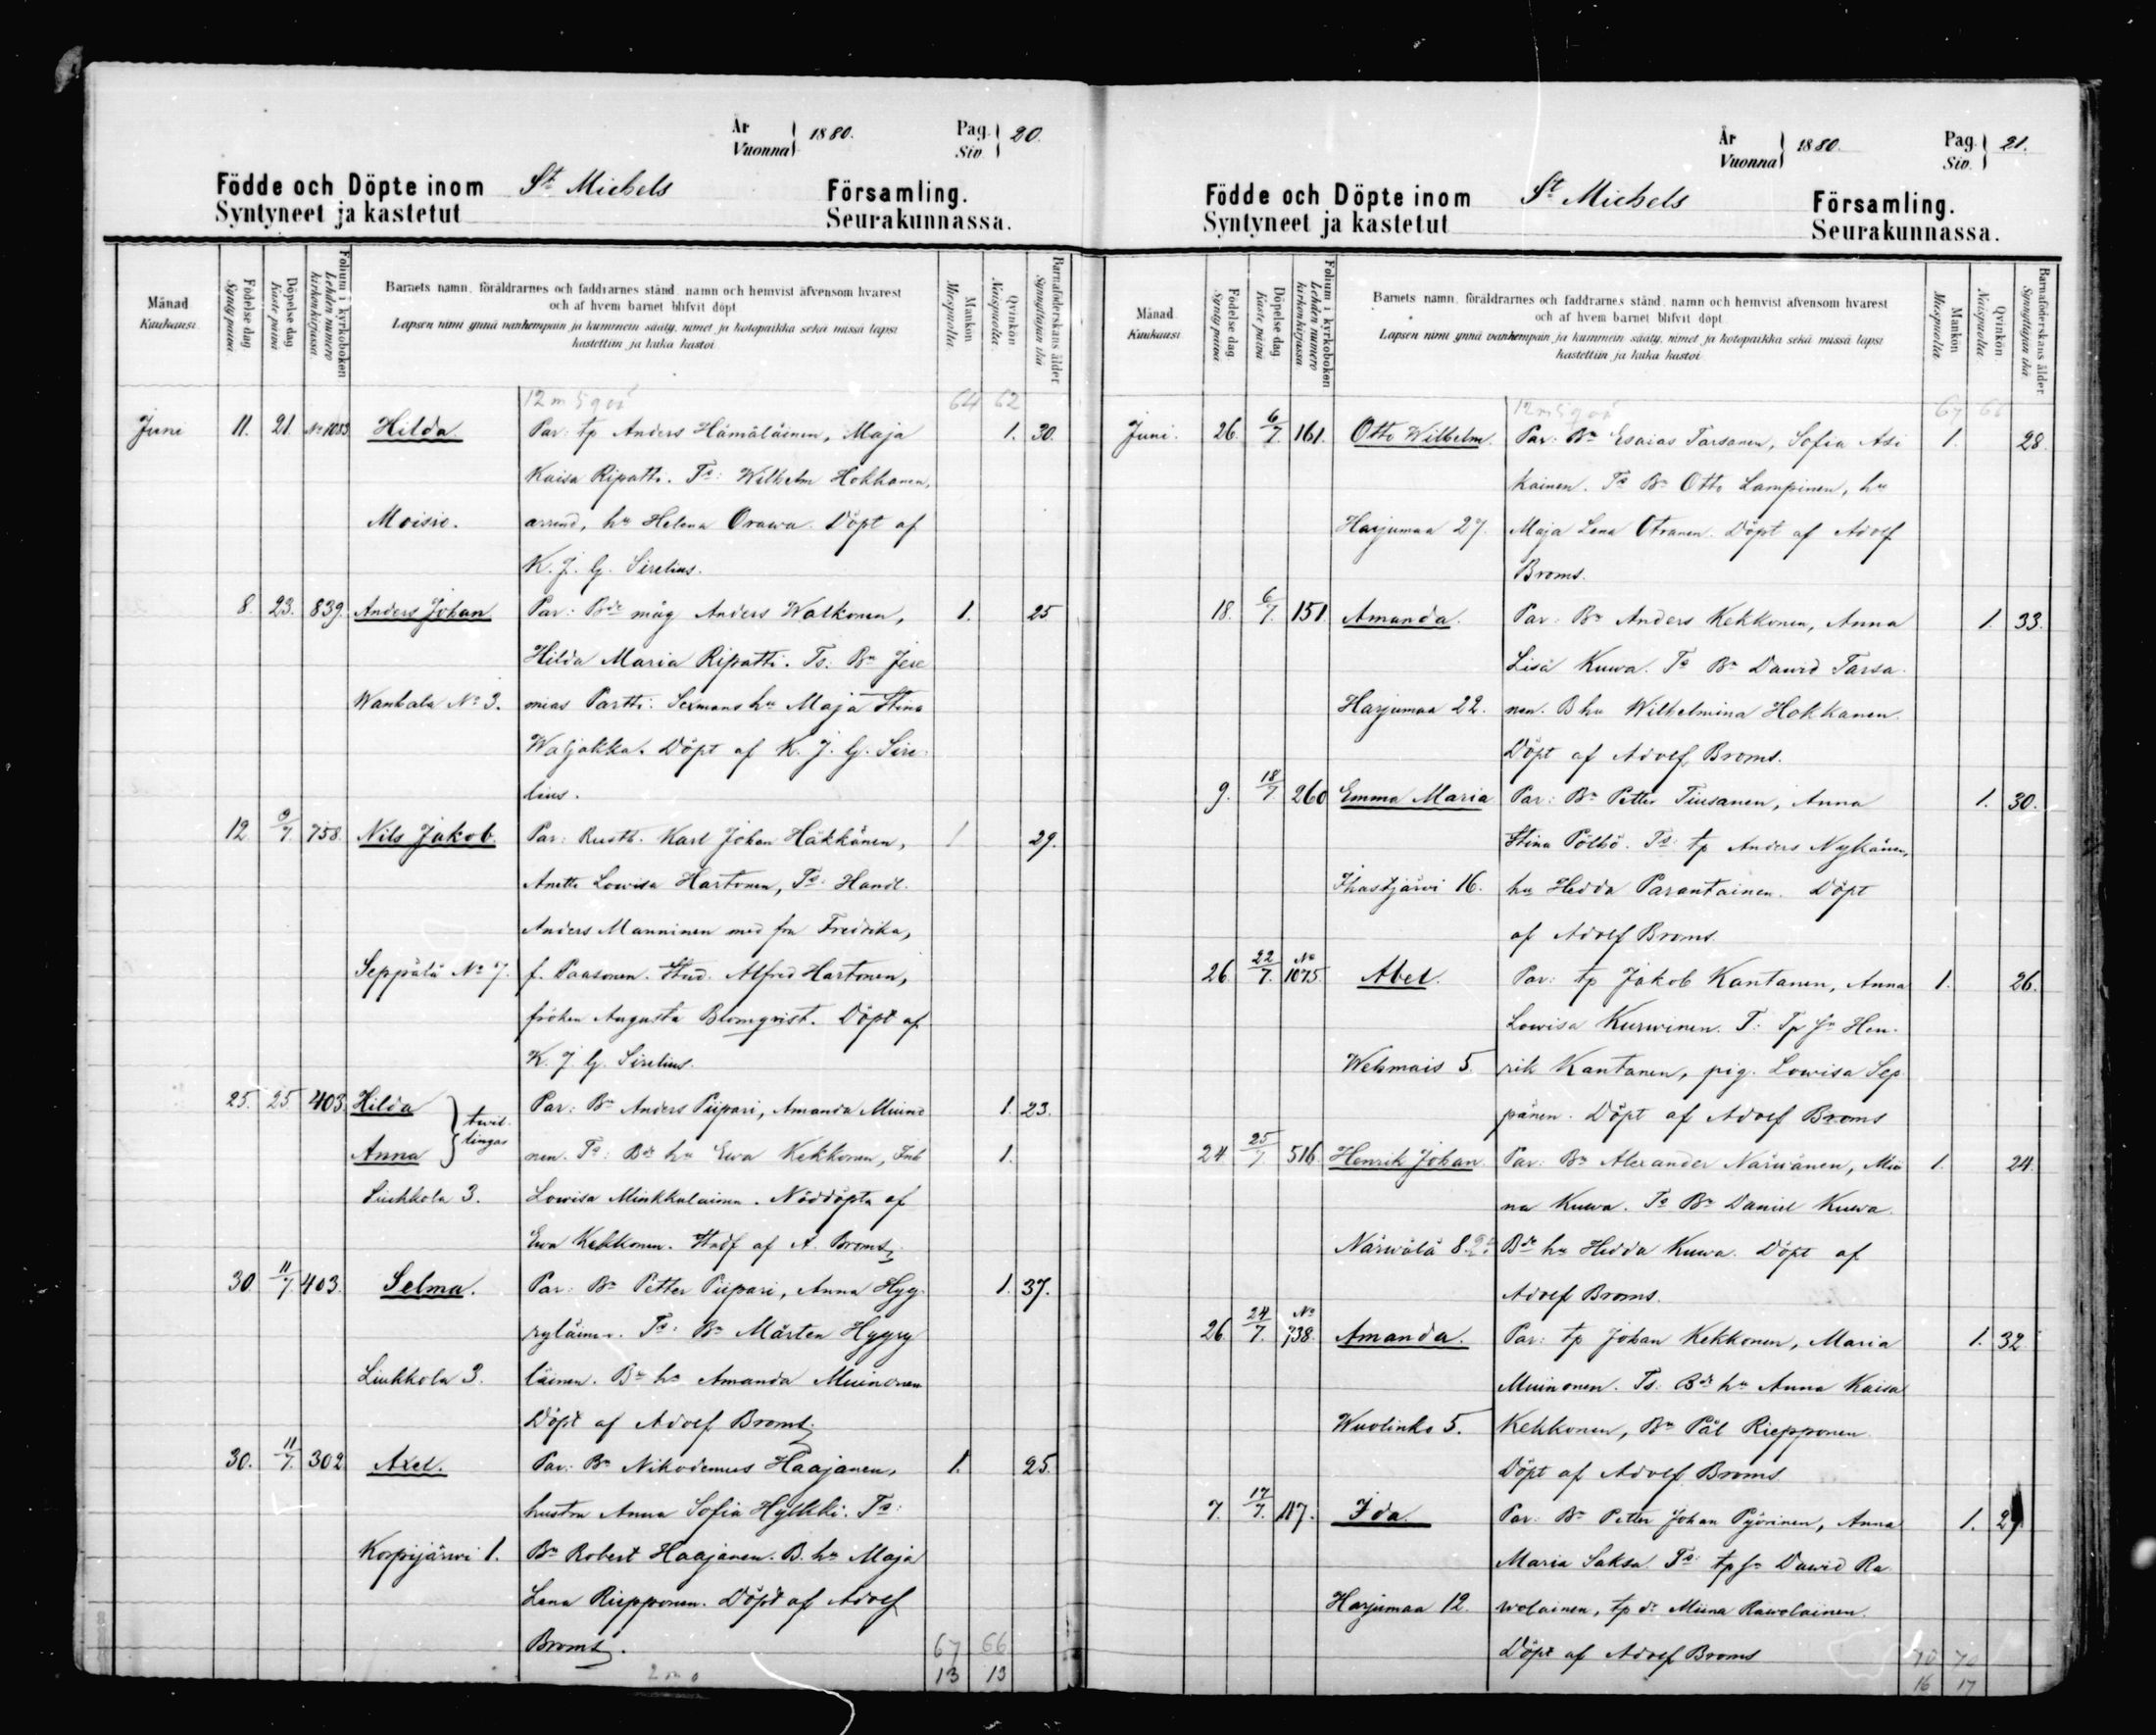 År Vuonna 1880. Pag. Siv. 20.
Födde och Döpte inom St Michels Församling.
Syntyneet ja kastetut Seurakunnassa.
Månad Kuukausi
Födelse dag Synty päiwä
Döpelse dag Kaste päiwä
Folium i kyrkoboken Lehden numero kirkonkirjassa
Barnets namn, föräldrarnes och faddrarnes stånd, namn och hemvist äfvensom hvarest
och af hvem barnet blifvit döpt
Lapsen nimi ynnä vanhempain ja kummein sääty, nimet ja kotopaikka sekä missä lapsi
kastettiin ja kuka kastoi
Mankön Miespuolta
Qvinkön Naispuolta
Barnaföderskans ålder Synnyttäjän ikä
64 62
Juni 11. 21. No 1083 Hilda. Par: tp Anders Hämäläinen, Maja 1. 30.
Kaisa Ripatti. Ts: Wilhelm Hokkanen,
Moisio. arrend, hu Helena Orawa. Döpt af
K. J. G. Sirelius.
8. 23. 839. Anders Johan Par: Bde måg Anders Walkonen, 1. 25
Hilda Maria Ripatti. Ts: Bn Jere
Wanhala No 3. mias Partti. Sexmans hu Maja Stina
Waljakka. Döpt af K. J. G. Sire-
lius.
12 9/7. 758. Nils Jakob. Par: Rusth. Karl Johan Häkkänen, 1 29.
Anette Lowisa Hartonen, Ts: Handl.
Anders Manninen med fru Fredrika,
Seppälä No 7. f. Paasonen. Stud. Alfred Hartonen,
fröken Augusta Blomqvist. Döpt af
K. J. G. Sirelius.
25. 25 403 Hilda Par: Bn Anders Piipari, Amanda Muino 1. 23.
twil-
lingar
Anna nen. Ts: Bde hu Ewa Kekkonen, Inh 1.
Liukkola 3. Lowisa Minkkulainen. Nöddöpta af
Ewa Kekkonen. Stadf af A. Broms.
30 11/7 403. Selma. Par: Bn Petter Piipari, Anna Hyy- 1. 37.
ryläinen. Ts: Bn Mårten Hyyry
Liukkola 3. läinen. Bn hu Amanda Muinonen
Döpt af Adolf Broms.
30. 11/7. 302 Axel. Par: Bn Nikodemus Haajanen, 1. 25.
hustru Anna Sofia Hylkki. Ts:
Korpijärwi 1. Bn Robert Haajanen. B. hu Maja
Lena Riepponen. Döpt af Adolf
Broms.
67 66
13 13
År Vuonna 1880. Pag. Siv. 21.
Födde och Döpte inom St Michels Församling.
Syntyneet ja kastetut Seurakunnassa.
Månad Kuukausi
Födelse dag Synty päiwä
Döpelse dag Kaste päiwä
Folium i kyrkoboken Lehden numero kirkonkirjassa
Barnets namn, föräldrarnes och faddrarnes stånd, namn och hemvist äfvensom hvarest
och af hvem barnet blifvit döpt
Lapsen nimi ynnä vanhempain ja kummein sääty, nimet ja kotopaikka sekä missä lapsi
kastettiin ja kuka kastoi
Mankön Miespuolta
Qvinkön Naispuolta
Barnaföderskans ålder Synnyttäjän ikä
67 66
Juni. 26. 6/7 161. Otto Wilhelm. Par: Bn Esaias Tarsanen, Sofia Asi 1. 28.
kainen. Ts Bn Otto Lampinen, hu
Harjumaa 27. Maja Lena Otranen. Döpt af Adolf
Broms.
18. 6/7. 151. Amanda. Par: Bn Anders Kekkonen, Anna 1. 33.
Lisa Kuwa. Ts Bn Dawid Tarsa-
Harjumaa 22. nen. B hu Wilhelmina Hokkanen.
Döpt af Adolf Broms.
9. 18/7 260 Emma Maria Par: Bn Petter Tiusanen, Anna 1. 30.
Stina Pöllö. Ts: tp Anders Nykänen,
Ihastjärwi 16. hu Hedda Parantainen. Döpt
af Adolf Broms.
26. 22/7. No 1075. Abel. Par: tp Jakob Kantanen, Anna 1. 26.
Lowisa Kurwinen. T: Tp sn Hen-
Wehmais 5. rik Kantanen, pig. Lowisa Sep
pänen. Döpt af Adolf Broms
24 25/7. 516. Henrik Johan Par: Bn Alexander Närwänen, Mii 1. 24.
na Kuwa. Ts Bn Daniel Kuwa.
Närwälä 8. Bde hu Hedda Kuwa. Döpt af
Adolf Broms.
26 24/7. No 738. Amanda. Par: tp Johan Kekkonen, Maria 1. 32
Muinonen. Ts. Bde hu Anna Kaisa
Wuolinko 5. Kekkonen, Bn Pål Riepponen
Döpt af Adolf Broms
7. 17/7. 117. Ida. Par: Bn Petter Johan Pyörinen, Anna 1.
Maria Saksa. Ts: tp sn Dawid Ra
Harjumaa 12. wolainen, tp dr Miina Rawolainen.
Döpt af Adolf Broms
70 70
16 17